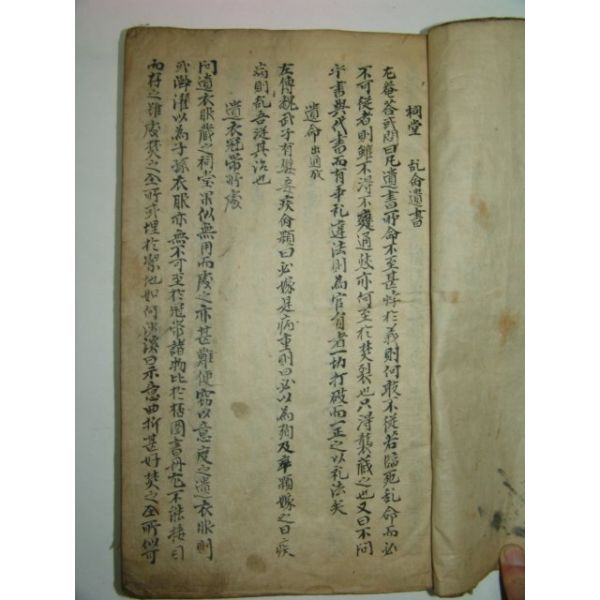 祠堂　乱命遺書
尤菴答或問曰凡遺書所命不至甚悖於義則何敢不従若臨死乱命而必
不可従者則雖不得不變通歧亦何至於焚裂也只得襲藏之也又曰不問
宇書與代書而有乖礼違法則為官員者一切打破而一正之以礼法矣
遺命出通攷
左傳魏武子有嬖妾疾命顆曰必嫁是病重則曰必以為殉及卒顆嫁之曰疾
病則乱吾從其治也
遺衣冠帶所處
問遺衣服藏之祠堂果似無用而處之亦甚難便窃以意度之遺衣服則
或澣濯以為子孫衣服亦無不可至於冠帶諸物比於栝圈書冊尤不能接目
而存之難處焚之全所或埋於潔地如何濠溪曰示意曲折甚好焚之全所似可